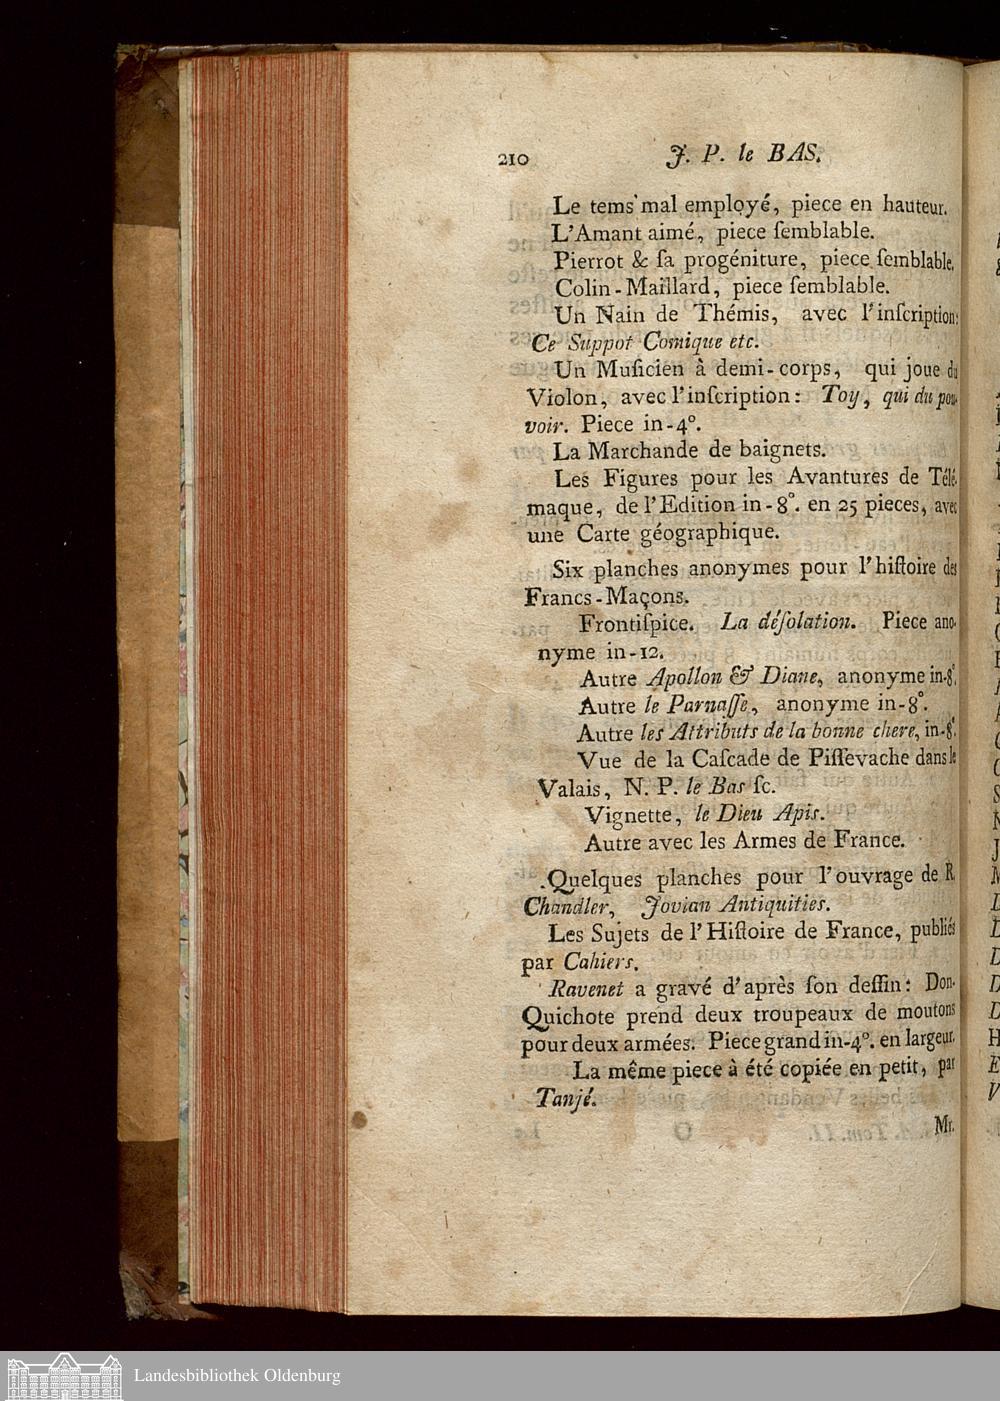 210 J. P. le BAS.
Le tems mal employé, piece en hauteur.
L'Amant aimé, piece ſemblable.
Pierrot & ſa progéniture, piece ſemblable.
Colin-Maillard, piece ſemblable.
Un Nain de Thémis, avec l'inſcription:
Ce Suppot Comique etc.
Un Muſicien à demi-corps, qui joue du
Violon, avec l'inſcription: Toy, qui du pou-
voir. Piece in-4°.
La Marchande de baignets.
Les Figures pour les Avantures de Télé-
maque, de l'Edition in-8°. en 25 pieces, avec
une Carte géographique.
Six planches anonymes pour l'hiſtoire des
Francs-Maçons.
Frontiſpice. La déſolation. Piece ano-
nyme in-12.
Autre Apollon & Diane, anonyme in-8°.
Autre le Parnaſſe, anonyme in-8°.
Autre les Attributs de la bonne chere, in-8°.
Vue de la Caſcade de Piſſevache dans le
Valais, N. P. le Bas ſc.
Vignette, le Dieu Apis.
Autre avec les Armes de France.
Quelques planches pour l'ouvrage de R.
Chandler, Jovian Antiquities.
Les Sujets de l'Hiſtoire de France, publiés
par Cahiers.
Ravenet a gravé d'après ſon deſſin: Don-
Quichote prend deux troupeaux de moutons
pour deux armées. Piece grand in-4°. en largeur.
La même piece à été copiée en petit, par
Tanjé.
Mr.
Landesbibliothek Oldenburg